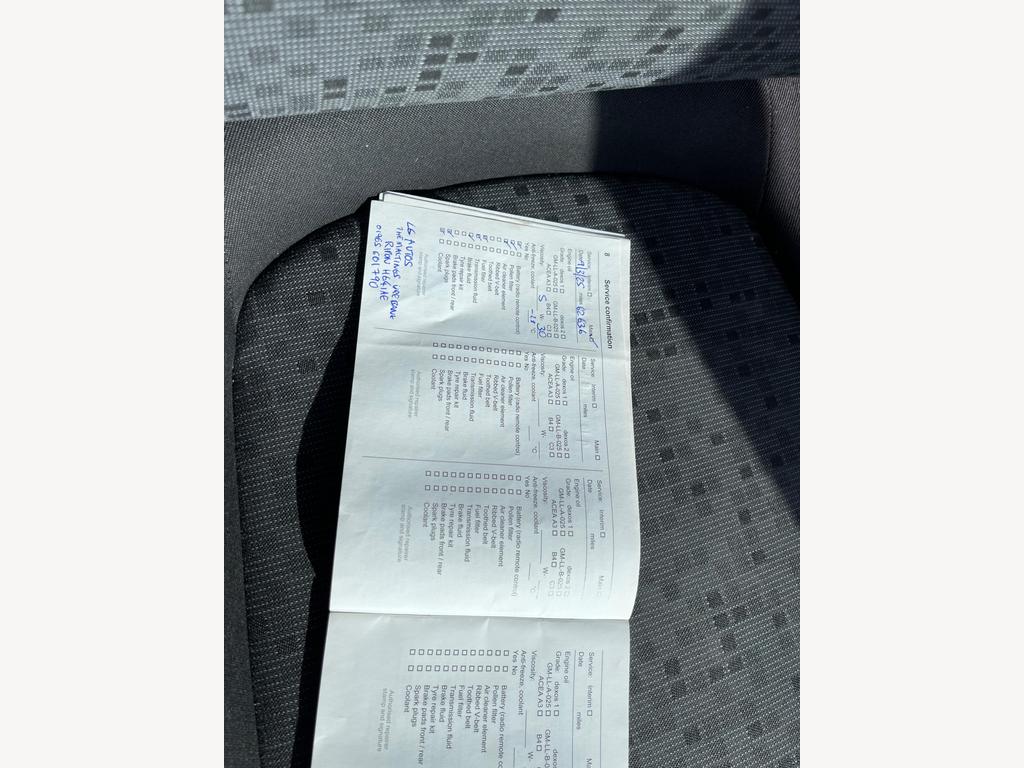 8
Service confirmation
Service: Interim ☐ Main
Date 19/3/25 miles 62636
Engine oil
Grade: dexos 1 ☐ dexos 2 ☐
GM-LL-A-025 ☐ GM-LL-B-025 ☐
ACEA A3 ☐ B4 ☐ C3 ☐
Viscosity: 5 W- 30
Anti-freeze, coolant °C
Yes No
Battery (radio remote control)
Pollen filter
Air cleaner element
Ribbed V-belt
Toothed belt
Fuel filter
Transmission fluid
Brake fluid
Tyre repair kit
Brake pads front / rear
Spark plugs
Coolant
Authorised repairer
stamp and signature
LG AUTOS
THE MALTINGS UREBANK
RIPON HG4 1AE
01765 601790
Service: Interim ☐ Main ☐
Date miles
Engine oil
Grade: dexos 1 ☐ dexos 2 ☐
GM-LL-A-025 ☐ GM-LL-B-025 ☐
ACEA A3 ☐ B4 ☐ C3 ☐
Viscosity: W-
Anti-freeze, coolant °C
Yes No
☐ ☐ Battery (radio remote control)
☐ ☐ Pollen filter
☐ ☐ Air cleaner element
☐ ☐ Ribbed V-belt
☐ ☐ Toothed belt
☐ ☐ Fuel filter
☐ ☐ Transmission fluid
☐ ☐ Brake fluid
☐ ☐ Tyre repair kit
☐ ☐ Brake pads front / rear
☐ ☐ Spark plugs
☐ ☐ Coolant
Authorised repairer
stamp and signature
Service: Interim ☐ Main ☐
Date miles
Engine oil
Grade: dexos 1 ☐ dexos 2 ☐
GM-LL-A-025 ☐ GM-LL-B-025 ☐
ACEA A3 ☐ B4 ☐ C3 ☐
Viscosity: W-
Anti-freeze, coolant °C
Yes No
☐ ☐ Battery (radio remote control)
☐ ☐ Pollen filter
☐ ☐ Air cleaner element
☐ ☐ Ribbed V-belt
☐ ☐ Toothed belt
☐ ☐ Fuel filter
☐ ☐ Transmission fluid
☐ ☐ Brake fluid
☐ ☐ Tyre repair kit
☐ ☐ Brake pads front / rear
☐ ☐ Spark plugs
☐ ☐ Coolant
Authorised repairer
stamp and signature
Service: Interim ☐
Date miles
Engine oil
Grade: dexos 1 ☐ dexos
GM-LL-A-025 ☐ GM-LL-B-0
ACEA A3 ☐ B4 ☐
Viscosity: W-
Anti-freeze, coolant
Yes No
☐ ☐ Battery (radio remote co
☐ ☐ Pollen filter
☐ ☐ Air cleaner element
☐ ☐ Ribbed V-belt
☐ ☐ Toothed belt
☐ ☐ Fuel filter
☐ ☐ Transmission fluid
☐ ☐ Brake fluid
☐ ☐ Tyre repair kit
☐ ☐ Brake pads front / rear
☐ ☐ Spark plugs
☐ ☐ Coolant
Authorised repairer
stamp and signature